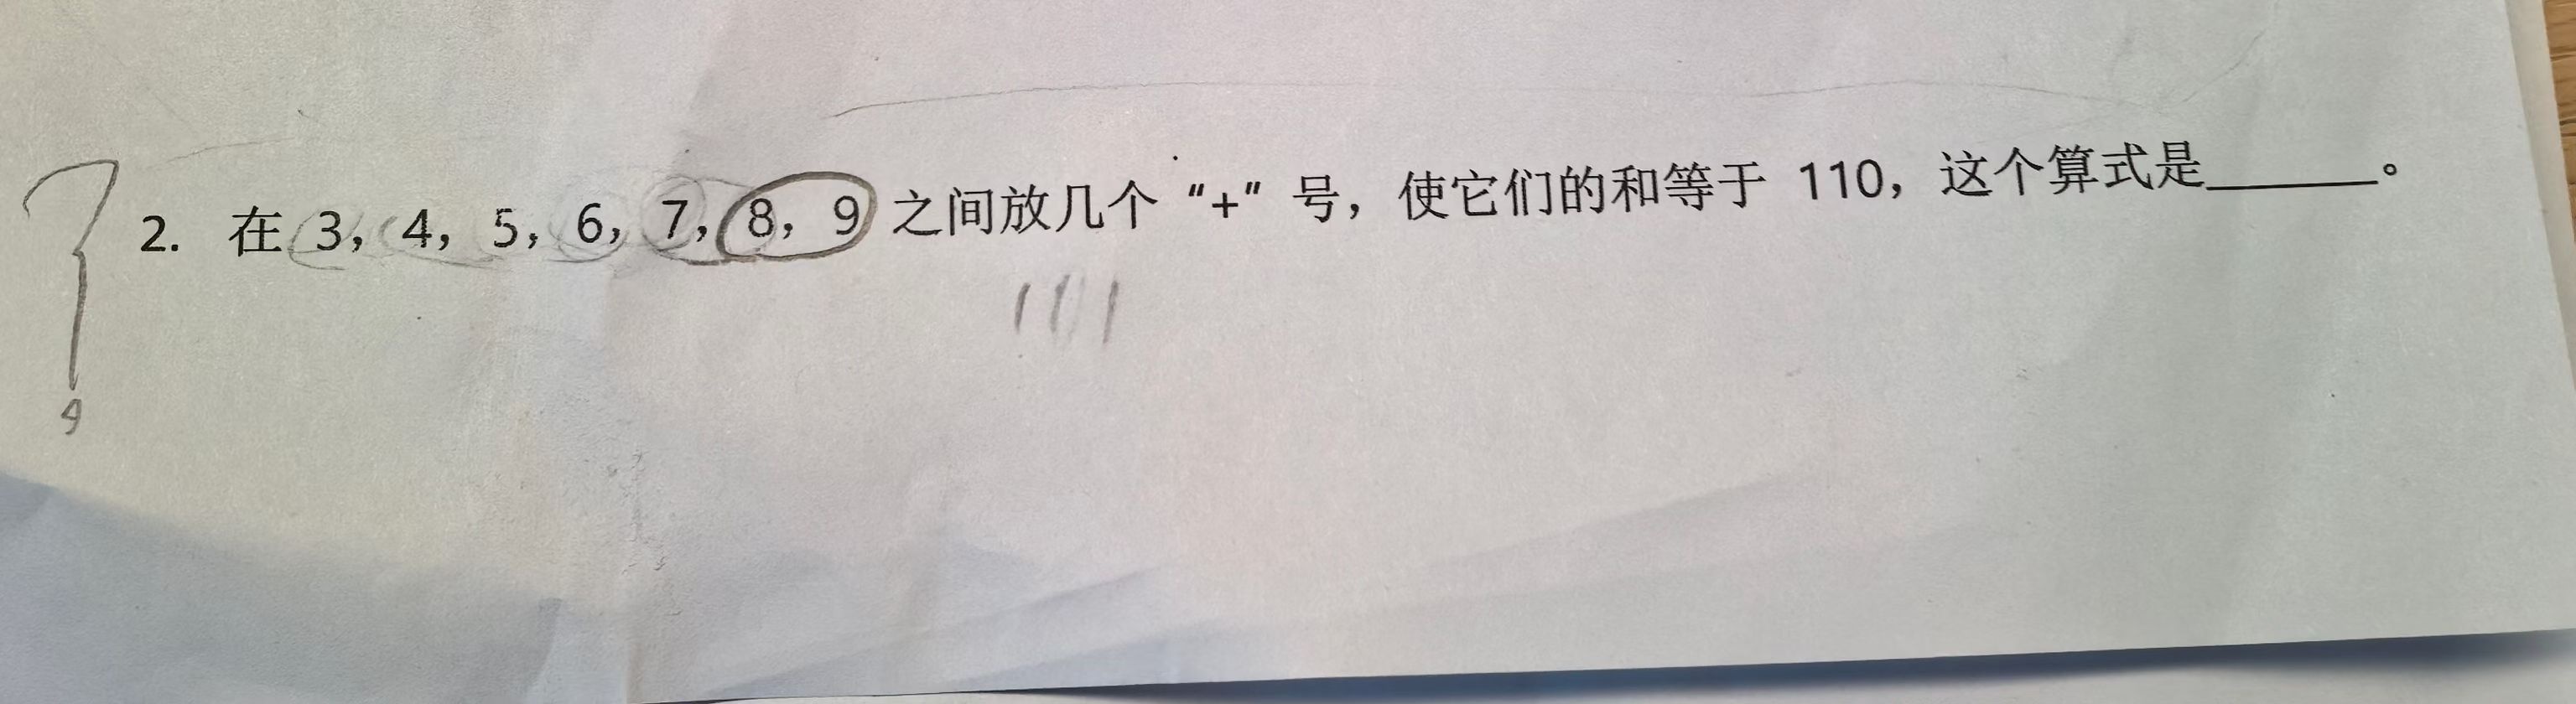 2. 在 3，4，5，6，7，8，9 之间放几个“+”号，使它们的和等于 110，这个算式是______。